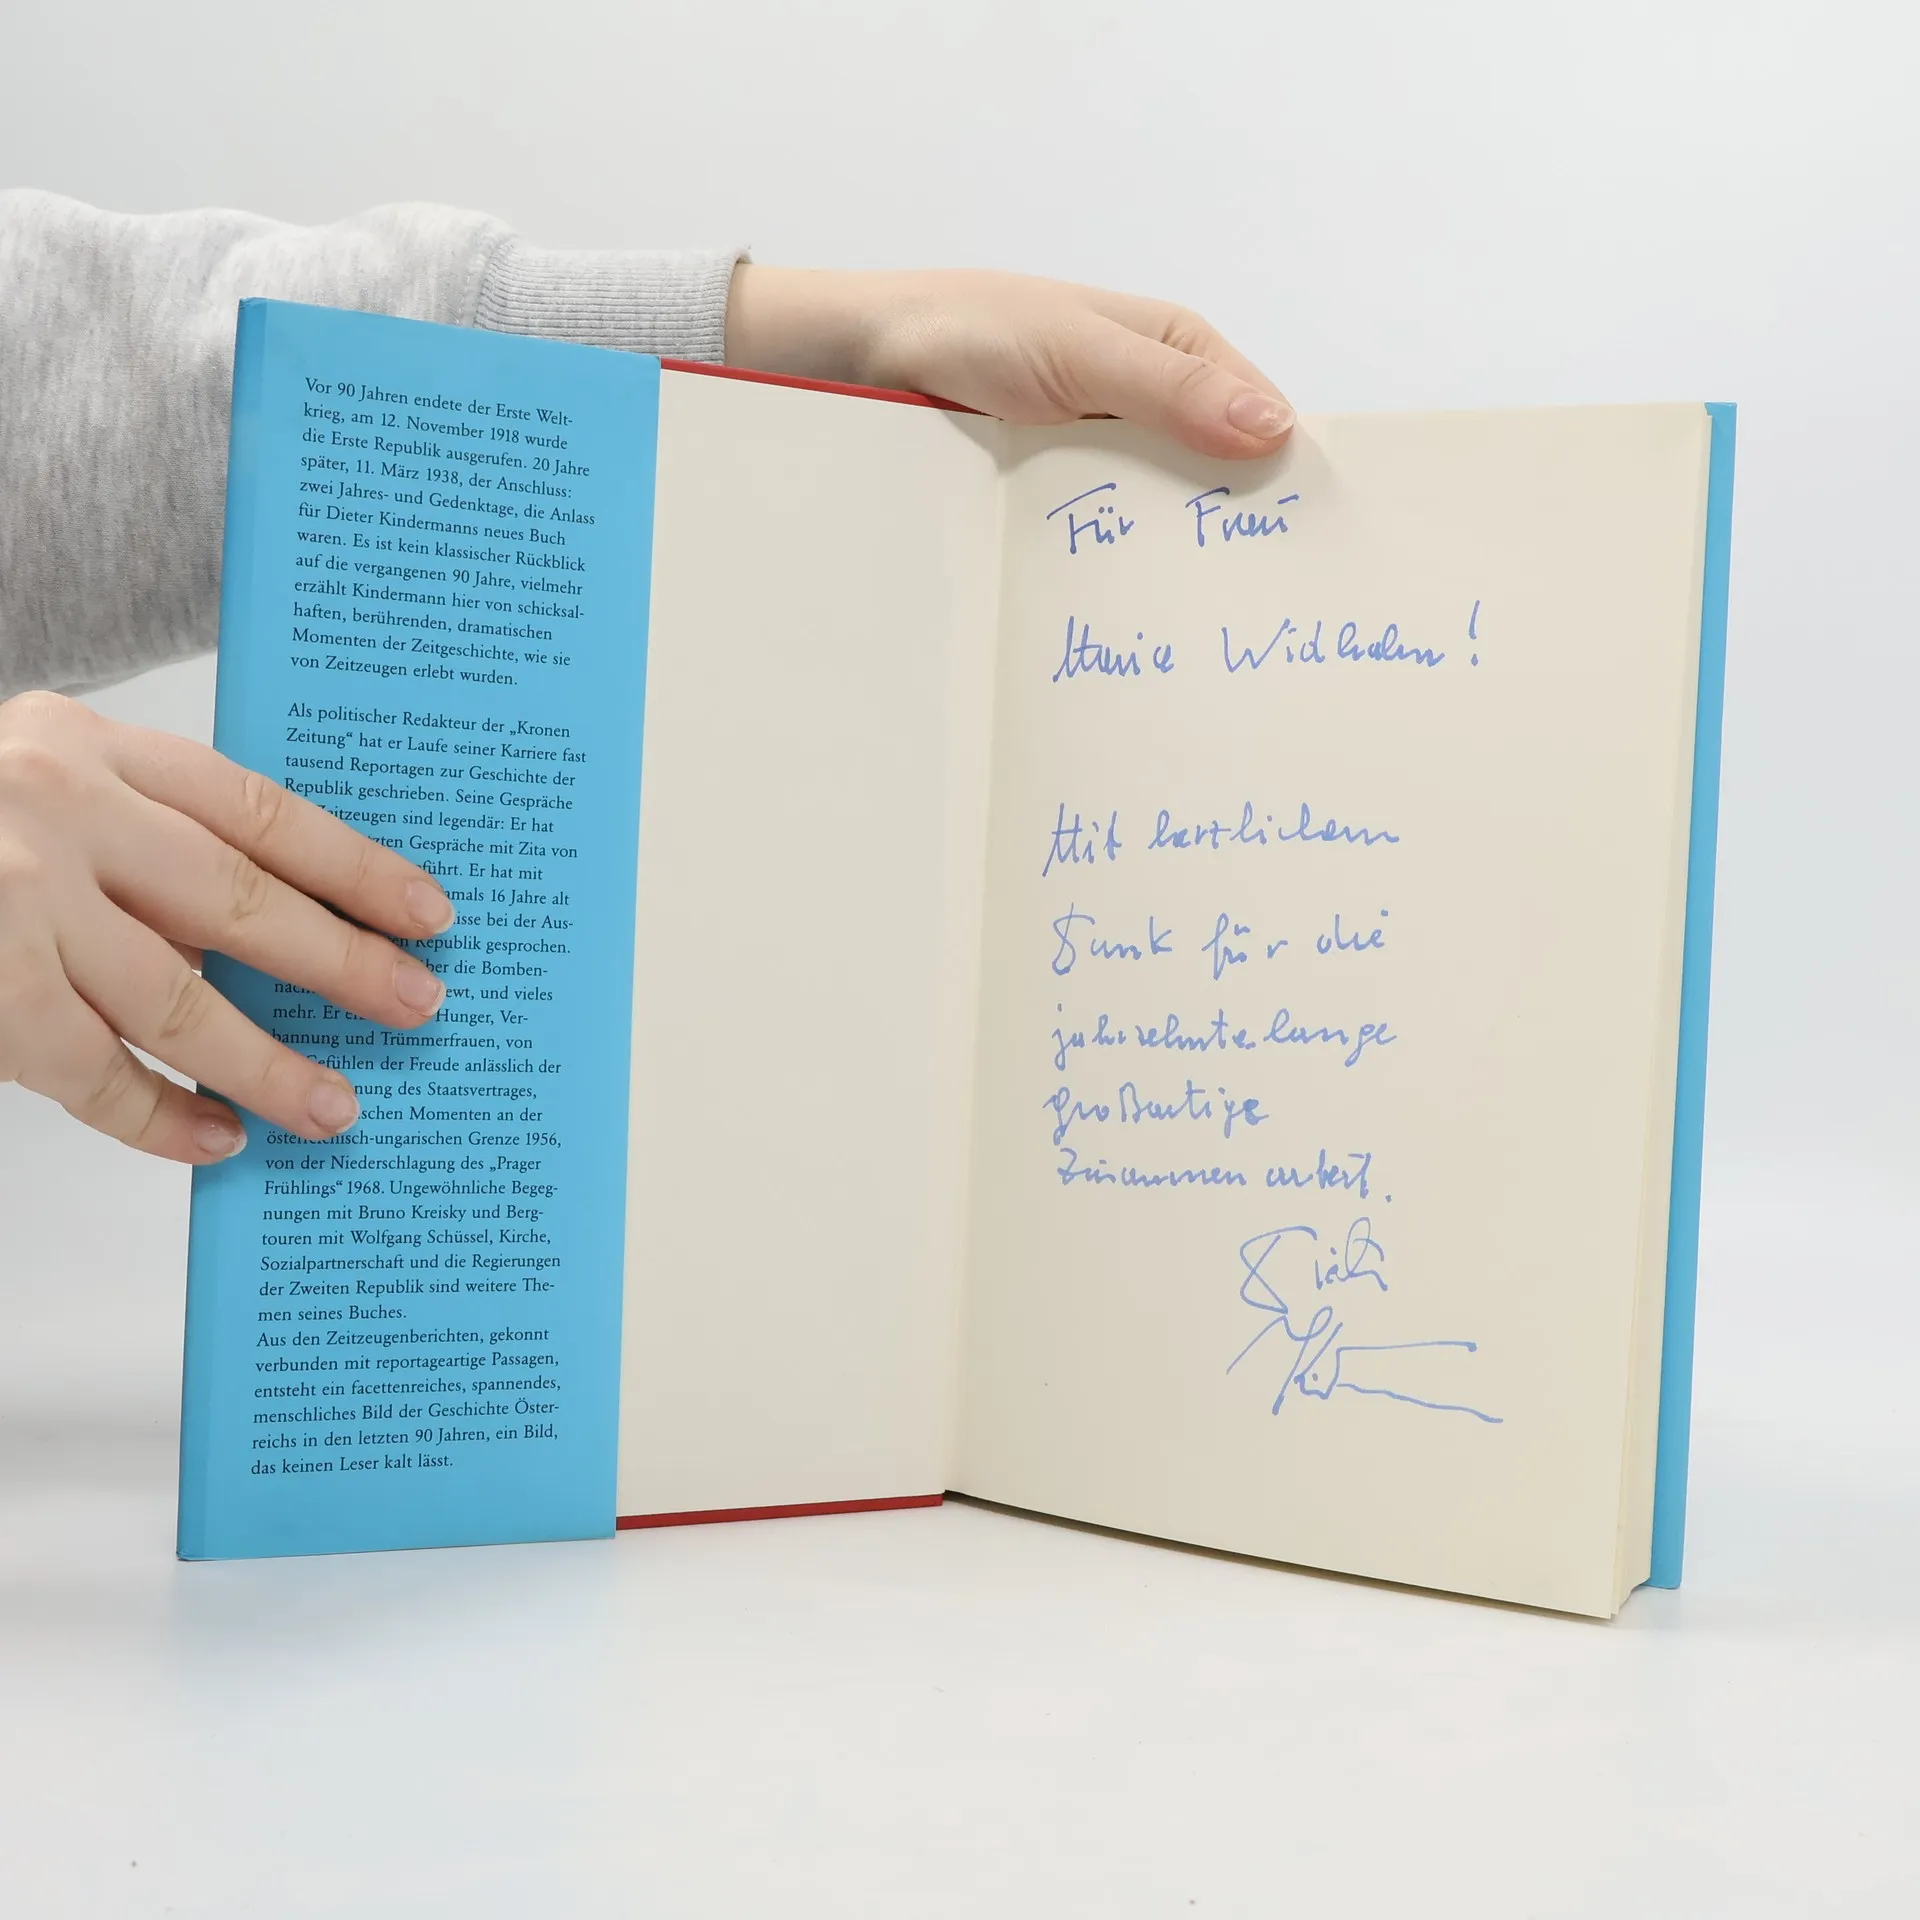 Vor 90 Jahren endete der Erste Welt-
krieg, am 12. November 1918 wurde
die Erste Republik ausgerufen. 20 Jahre
später, 11. März 1938, der Anschluss:
zwei Jahres- und Gedenktage, die Anlass
für Dieter Kindermanns neues Buch
waren. Es ist kein klassischer Rückblick
auf die vergangenen 90 Jahre, vielmehr
erzählt Kindermann hier von schicksal-
haften, berührenden, dramatischen
Momenten der Zeitgeschichte, wie sie
von Zeitzeugen erlebt wurden.
Als politischer Redakteur der „Kronen
Zeitung“ hat er Laufe seiner Karriere fast
tausend Reportagen zur Geschichte der
Republik geschrieben. Seine Gespräche
Zeitzeugen sind legendär: Er hat
Gespräche mit Zita von
führt. Er hat mit
amals 16 Jahre alt
isse bei der Aus-
Republik gesprochen.
über die Bomben-
ewt, und vieles
mehr. Er Hunger, Ver-
bannung und Trümmerfrauen, von
Gefühlen der Freude anlässlich der
nung des Staatsvertrages,
schen Momenten an der
österreichisch-ungarischen Grenze 1956,
von der Niederschlagung des „Prager
Frühlings“ 1968. Ungewöhnliche Begeg-
nungen mit Bruno Kreisky und Berg-
touren mit Wolfgang Schüssel, Kirche,
Sozialpartnerschaft und die Regierungen
der Zweiten Republik sind weitere The-
men seines Buches.
Aus den Zeitzeugenberichten, gekonnt
verbunden mit reportageartige Passagen,
entsteht ein facettenreiches, spannendes,
menschliches Bild der Geschichte Öster-
reichs in den letzten 90 Jahren, ein Bild,
das keinen Leser kalt lässt.
Für Frau
Marica Widhalm!
Mit herzlichem
Dank für die
jahrzehntelange
großartige
Zusammenarbeit.